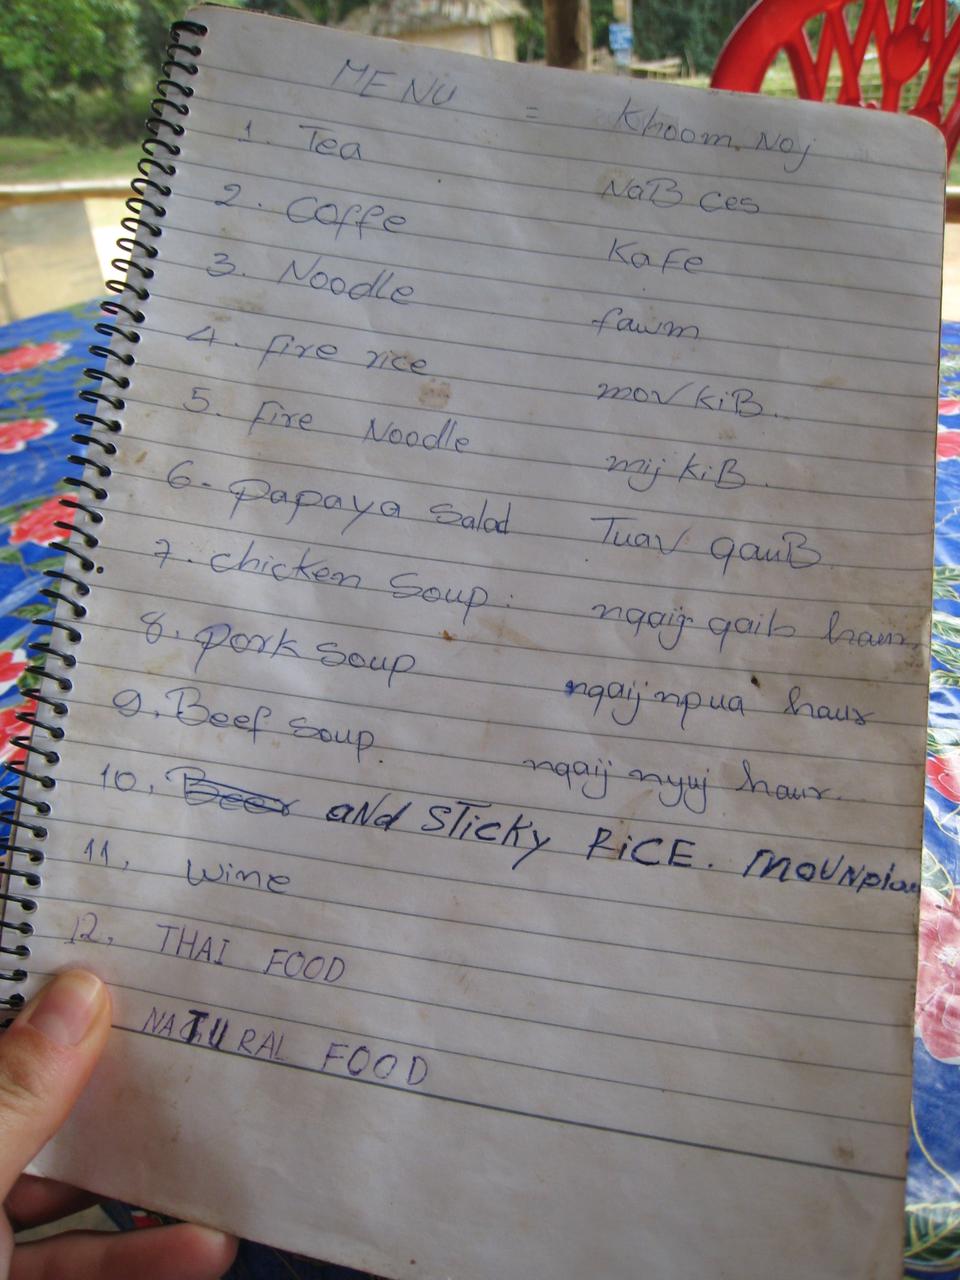 MENU = Khoom Noj
1. Tea NaB ces
2. Coffe Kafe
3. Noodle fawm
4. fire rice mov kiB..
5. fire Noodle mij kiB.
6. papaya Salad Tuav qauB
7. chicken Soup: nqaij qaib haur
8. pork Soup nqaij npua haur
9. Beef Soup nqaij nyuj haur..
10. Beer aNd STicKy RiCE.
11. Wine
12. THAI FOOD
NATURAL FOOD